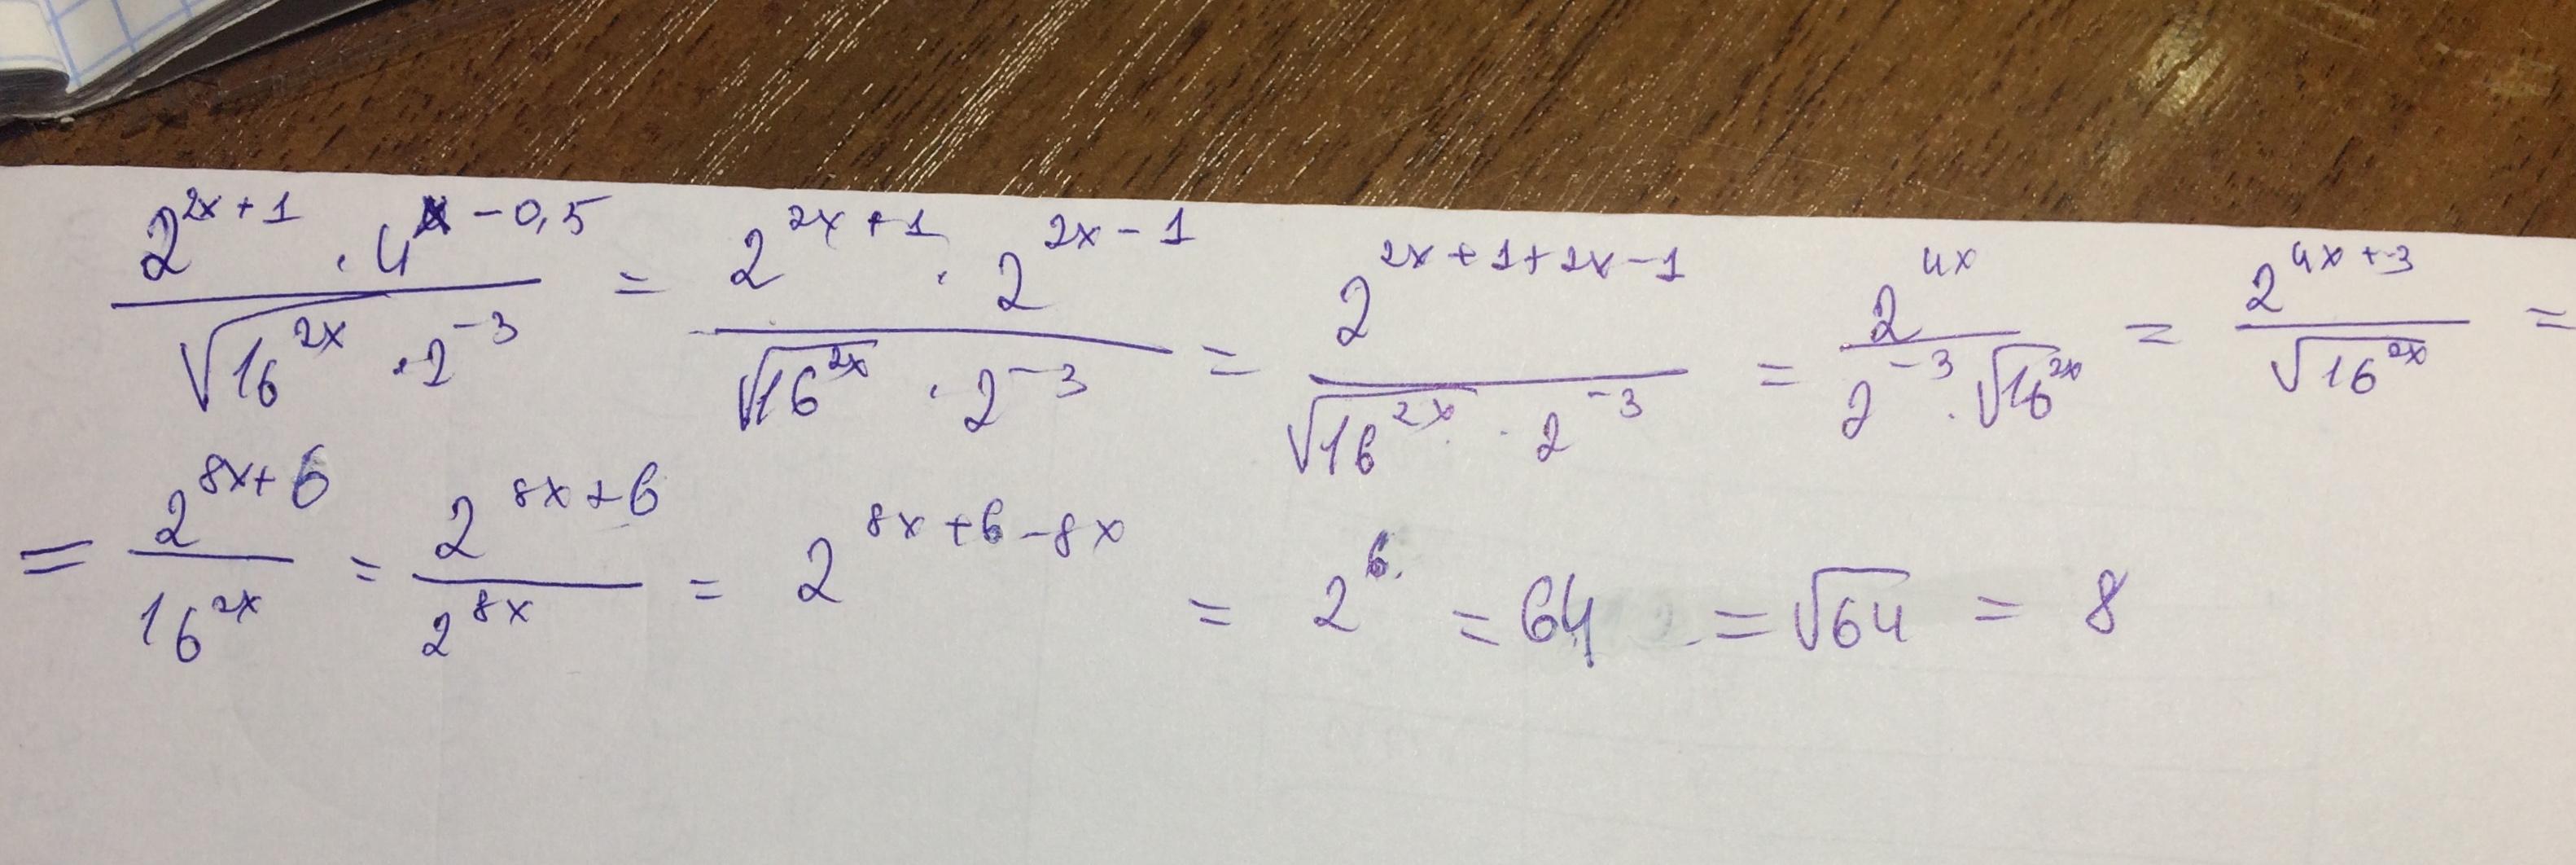 2^(2x+1) · 4^(x-0,5) / √16^(2x) · 2^(-3) = 2^(2x+1) · 2^(2x-1) / √16^(2x) · 2^(-3) = 2^(2x+1+2x-1) / √16^(2x) · 2^(-3) = 2^(4x) / 2^(-3) · √16^(2x) = 2^(4x+3) / √16^(2x) =
= 2^(8x+6) / 16^(2x) = 2^(8x+6) / 2^(8x) = 2^(8x+6-8x) = 2^6 = 64 = √64 = 8